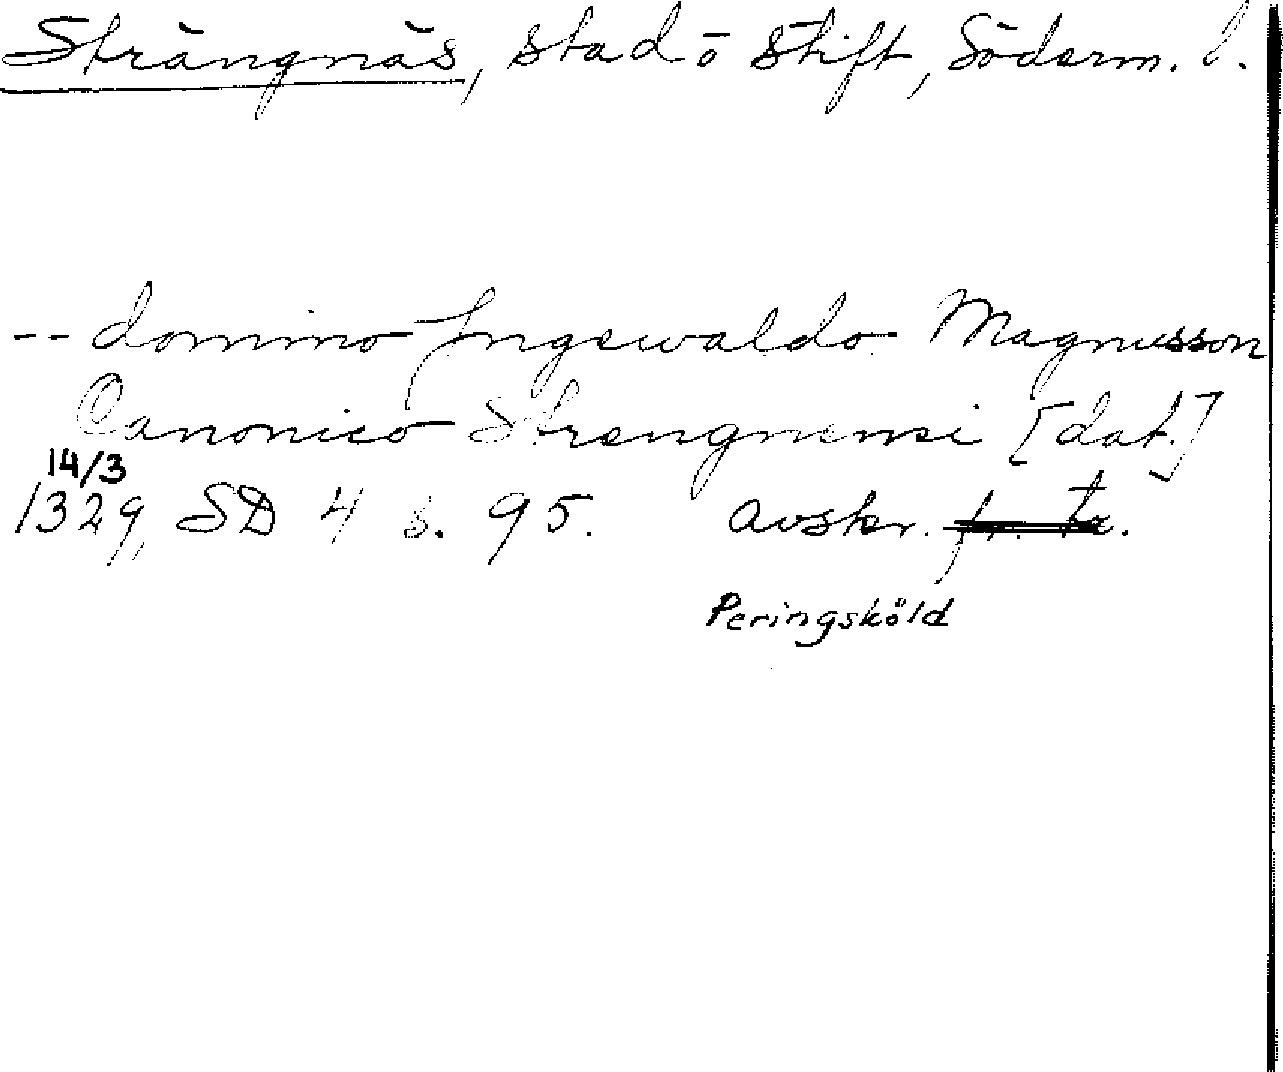 Strängnäs, stad o stift, Söderm. l.
-- domino Ingewaldo Magnusson
Canonico Strengnensi [dat.]
14/3
1329, SD 4 s. 95. avskr.
Peringsköld